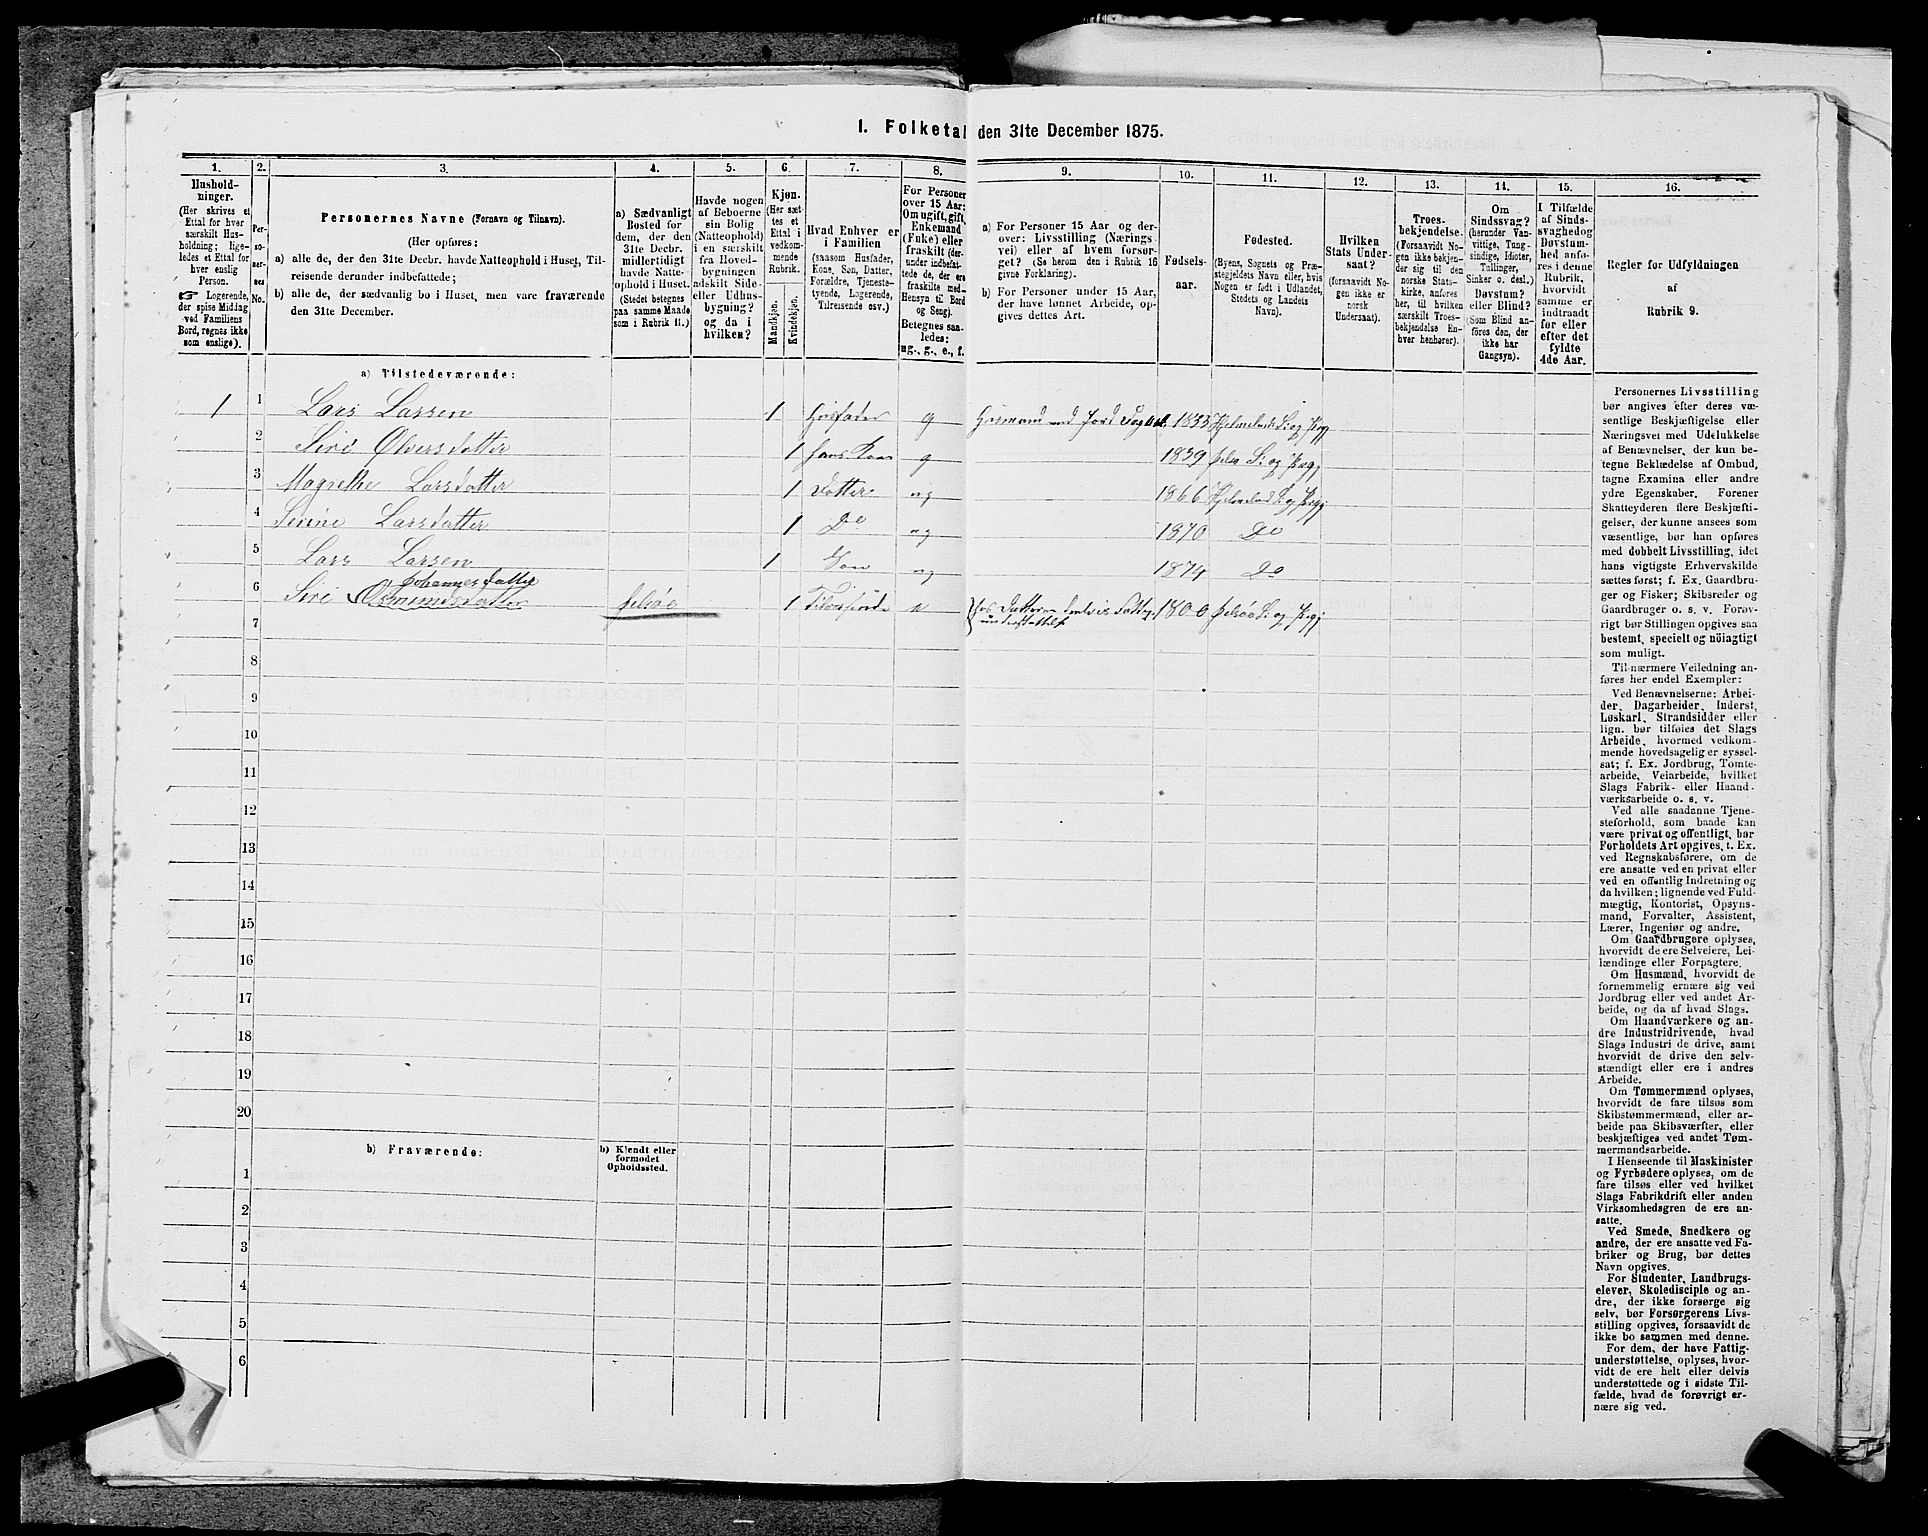 1. Folketal den 31te December 1875.
1.
Hushold-
ninger.
(Her skrives et
Ettal for hver
særskilt Hus-
holdning; lige-
ledes et Ettal for
hver enslig
Person.
☞ Logerende,
der spise Middag
ved Familiens
Bord, regnes ikke
som enslige).
2.
Per-
so-
ner-
nes
No.
3.
Personernes Navne (Fornavn og Tilnavn).
(Her opføres:
a) alle de, der den 31te Decbr. havde Natteophold i Huset, Til-
reisende derunder indbefattede;
b) alle de, der sædvanlig bo i Huset, men vare fraværende
den 31te December.
4.
a) Sædvanligt
Bosted for
dem, der den
31te Decbr.
midlertidigt
havde Natte-
ophold i Huset.
(Stedet betegnes
paa samme Maade
som i Rubrik 11.)
5.
Havde nogen
af Beboerne
sin Bolig
(Natteophold)
i en særskilt
fra Hoved-
bygningen
adskilt Side-
eller Udhus-
bygning?
og da i
hvilken?
6.
Kjøn.
(Her sæt-
tes et
Ettal i
vedkom-
mende
Rubrik.
Mandkjøn.
Kvindekjøn.
7.
Hvad Enhver er
i Familien
(saasom Husfader,
Kone, Søn, Datter,
Forældre, Tjeneste-
tyende, Logerende,
Tilreisende osv.)
8.
For Personer
over 15 Aar:
Om ugift, gift,
Enkemand
(Enke) eller
fraskilt (der-
under indbefat-
tede de, der ere
fraskilte med-
Hensyn til Bord
og Seng).
Betegnes saa-
ledes:
ug., g., e., f.
9.
a) For Personer 15 Aar og der-
over: Livsstilling (Nærings-
vei) eller af hvem forsør-
get? (Se herom den i Rubrik 16
givne Forklaring).
b) For Personer under 15 Aar,
der have lønnet Arbeide, op-
gives dettes Art.
10.
Fødsels-
aar.
11.
Fødested.
(Byens, Sognets og Præ-
stegjeldets Navn eller, hvis
Nogen er født i Udlandet,
Stedets og Landets
Navn).
12.
Hvilken
Stats Under-
saat?
(forsaavidt No-
gen ikke er
norsk
Undersaat).
13.
Troes-
bekjendelse.
(Forsaavidt No-
gen ikke bekjen-
der sig til den
norske Stats-
kirke, anføres
her, til hvilken
særskilt Troes-
bekjendelse En-
hver henhører).
14.
Om
Sindssvag?
(herunder Van-
vittige, Tung-
sindige, Idioter,
Tullinger,
Sinker o. desl.)
Døvstum?
eller Blind?
(Som Blind an-
føres den, der
ikke har
Gangsyn).
15.
I Tilfælde
af Sinds-
svaghed og
Døvstum-
hed anfø-
res i denne
Rubrik,
hvorvidt
samme er
indtraadt
før eller
efter det
fyldte
4de Aar.
16.
Regler for Udfyldningen
af
Rubrik 9.
a) Tilstedeværende:
1 1 Lars Larsen 1 Husfader g Husmand med Jord 1833 Hjelmelands S: og Prgj
2 Siri Olversdatter 1 hans Kone g 1839 S: og Prgj
3 Magrethe Larsdatter 1 Datter ug 1866 S: og Prgj
4 Serine Larsdatter 1 Do ug 1870 Do
5 Lars Larsen 1 Søn ug 1874 Do
Johannesdatter
6 Siri Osmundsdatter 1 af Datteren delvis 1800 S: og Prgj
understøttelse
7
8
9
10
11
12
13
14
15
16
17
18
19
20
b) Fraværende:
b) Kjendt eller
formodet
Opholdssted.
1
2
3
4
5
6
Personernes Livsstilling
bør angives efter deres væ-
sentlige Beskjæftigelse eller
Næringsvei med Udelukkelse
af Benævnelser, der kun be-
tegne Beklædelse af Ombud,
tagne Examina eller andre
ydre Egenskaber. Forener
Skatteyderen flere Beskjæfti-
gelser, der kunne ansees som
væsentlige, bør han opføres
med dobbelt Livsstilling, idet
hans vigtigste Erhvervskilde
sættes først; f. Ex. Gaardbru-
ger og Fisker; Skibsreder og
Gaardbruger o. s. v. Forøv-
rigt bør Stillingen opgives saa
bestemt, specielt og nøiagtigt
som muligt.
Til nærmere Veiledning an-
føres her endel Exempler:
Ved Benævnelserne: Arbei-
der, Dagarbeider, Inderst,
Løskarl, Strandsidder eller
lign. bør tilføies det Slags
Arbeide, hvormed vedkom-
mende hovedsagelig er syssel-
sat; f. Ex. Jordbrug, Tomte-
arbeide, Veiarbeide, hvilket
Slags Fabrik- eller Haand-
værksarbeide o. s. v.
Ved alle saadanne Tjene-
steforhold, som baade kan
være privat og offentligt, bør
Forholdets Art opgives, t. Ex.
ved Regnskabsførere, om de
ere ansatte ved en privat eller
ved en offentlig Indretning og
da hvilken; lignende ved Fuld-
mægtig, Kontorist, Opsyns-
mand, Forvalter, Assistent,
Lærer, Ingeniør og andre.
Om Gaardbrugere oplyses,
hvorvidt de ere Selveiere, Lei-
lændinge eller Forpagtere.
Om Husmænd, hvorvidt de
fornemmelig ernære sig ved
Jordbrug eller ved andet Ar-
beide, og da af hvad Slags.
Om Haandværkere og an-
dre Industridrivende, hvad
Slags Industri de drive, samt
hvorvidt de drive den selv-
stændigt eller ere i andres
Arbeide.
Om Tømmermænd oplyses,
hvorvidt de fare tilsøs som
Skibstømmermænd, eller ar-
beide paa Skibsværfter, eller
beskjæftiges ved andet Tøm-
mermandsarbeide.
I Henseende til Maskinister
og Fyrbødere oplyses, om de
fare tilsøs eller ved hvilket
Slags Fabrikdrift eller anden
Virksomhedsgren de ere an-
satte.
Ved Smede, Snedkere og
andre, der ere ansatte ved Fa-
briker og Brug, bør dettes
Navn opgives.
For Studenter, Landbrugs-
elever, Skoledisciple og an-
dre, der ikke forsørge sig
selv, bør Forsørgerens Livs-
stilling opgives, forsaavidt de
ikke bo sammen med denne.
For dem, der have Fattig-
understøttelse, oplyses, hvor-
vidt de ere helt eller delvis
understøttede og i sidste Til-
fælde, hvad de forøvrigt er-
nære sig ved.